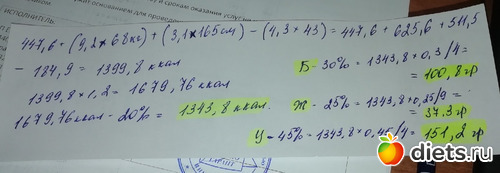 оказания услуг
447,6 + (9,2*68кг) + (3,1*165см) - (4,3*43) = 447,6 + 625,6 + 511,5
- 184,9 = 1399,8 ккал
1399,8 * 1,2 = 1679,76 ккал
1679,76 ккал - 20% = 1343,8 ккал.
Б - 30% = 1343,8 * 0,3 / 4 =
= 100,8 гр
Ж - 25% = 1343,8 * 0,25 / 9 =
= 37,3 гр
У - 45% = 1343,8 * 0,45 / 4 = 151,2 гр
diets.ru